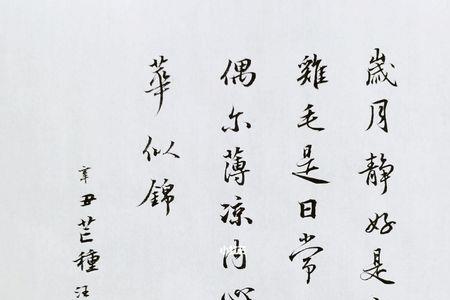 歲月靜好是
雞毛是日常
偶尔薄凉内
華似錦
辛丑芒種汪